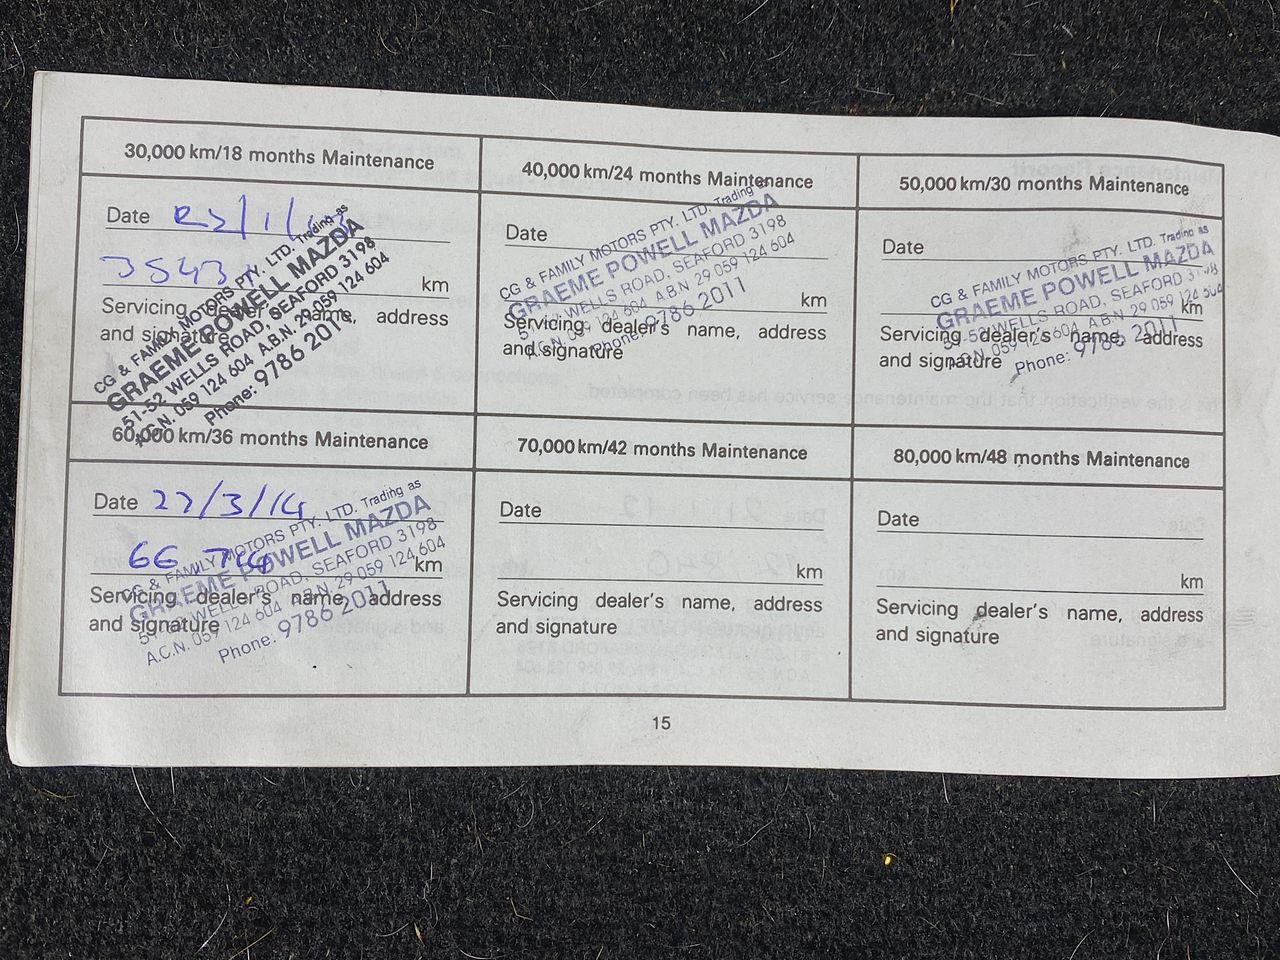 30,000 km/18 months Maintenance
Date
km
Servicing dealer's name, address
and signature
CG & FAMILY MOTORS PTY. LTD. Trading as
GRAEME POWELL MAZDA
51-52 WELLS ROAD, SEAFORD 3198
A.C.N. 059 124 604 A.B.N. 29 059 124 604
Phone: 9786 2011
40,000 km/24 months Maintenance
Date
km
Servicing dealer's name, address
and signature
CG & FAMILY MOTORS PTY. LTD. Trading as
GRAEME POWELL MAZDA
51-52 WELLS ROAD, SEAFORD 3198
A.C.N. 059 124 604 A.B.N. 29 059 124 604
Phone: 9786 2011
50,000 km/30 months Maintenance
Date
km
Servicing dealer's name, address
and signature
CG & FAMILY MOTORS PTY. LTD. Trading as
GRAEME POWELL MAZDA
51-52 WELLS ROAD, SEAFORD 3198
A.C.N. 059 124 604 A.B.N. 29 059 124 604
Phone: 9786 2011
60,000 km/36 months Maintenance
Date 22/3/14
66,
km
Servicing dealer's name, address
and signature
CG & FAMILY MOTORS PTY. LTD. Trading as
GRAEME POWELL MAZDA
51-52 WELLS ROAD, SEAFORD 3198
A.C.N. 059 124 604 A.B.N. 29 059 124 604
Phone: 9786 2011
70,000 km/42 months Maintenance
Date
km
Servicing dealer's name, address
and signature
80,000 km/48 months Maintenance
Date
km
Servicing dealer's name, address
and signature
15